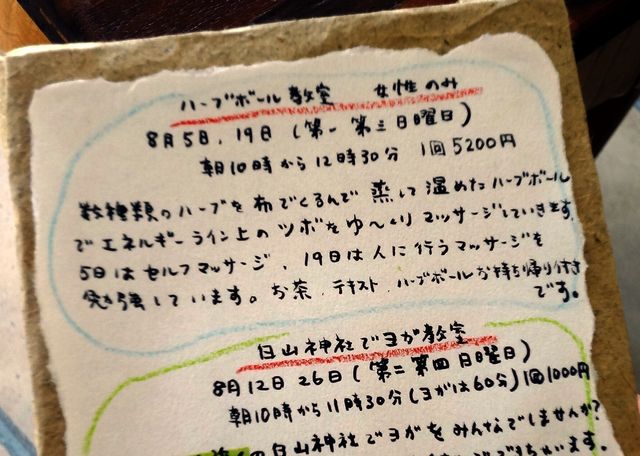 ハーブボール教室 女性のみ
8月5日、19日 (第一 第三 日曜日)
朝10時から12時30分 1回5200円
数種類のハーブを布でくるんで 蒸して 温めたハーブボール
でエネルギーライン上のツボをゆ〜くりマッサージしていきます。
5日はセルフマッサージ、19日は人に行うマッサージを
勉強しています。お茶、テキスト、ハーブボールお持ち帰り付き
です。
白山神社でヨガ教室
8月12日 26日(第二 第四 日曜日)
朝10時から11時30分(ヨガは60分)1回1000円
の白山神社でヨガをみんなでしませんか?